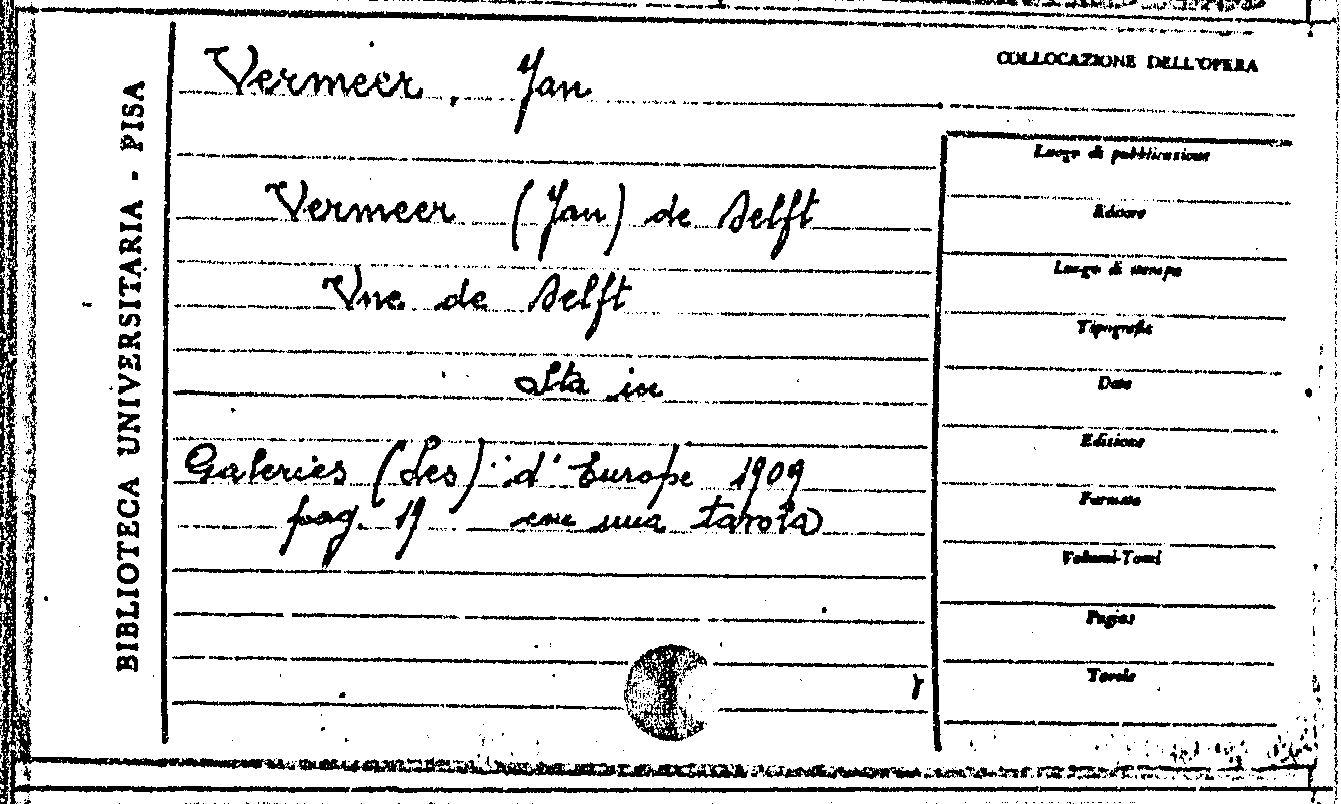 BIBLIOTECA UNIVERSITARIA - PISA
Vermeer, Jan
COLLOCAZIONE DELL'OPERA
Vermeer (Jan) de Delft
Vue de Delft
Sta in
Galeries (Les) d'Europe 1909
pag. 19 con una tavola
Luogo di pubblicazione
Editore
Luogo di stampa
Tipografia
Data
Edizione
Formato
Volumi-Tomi
Pagine
Tavole